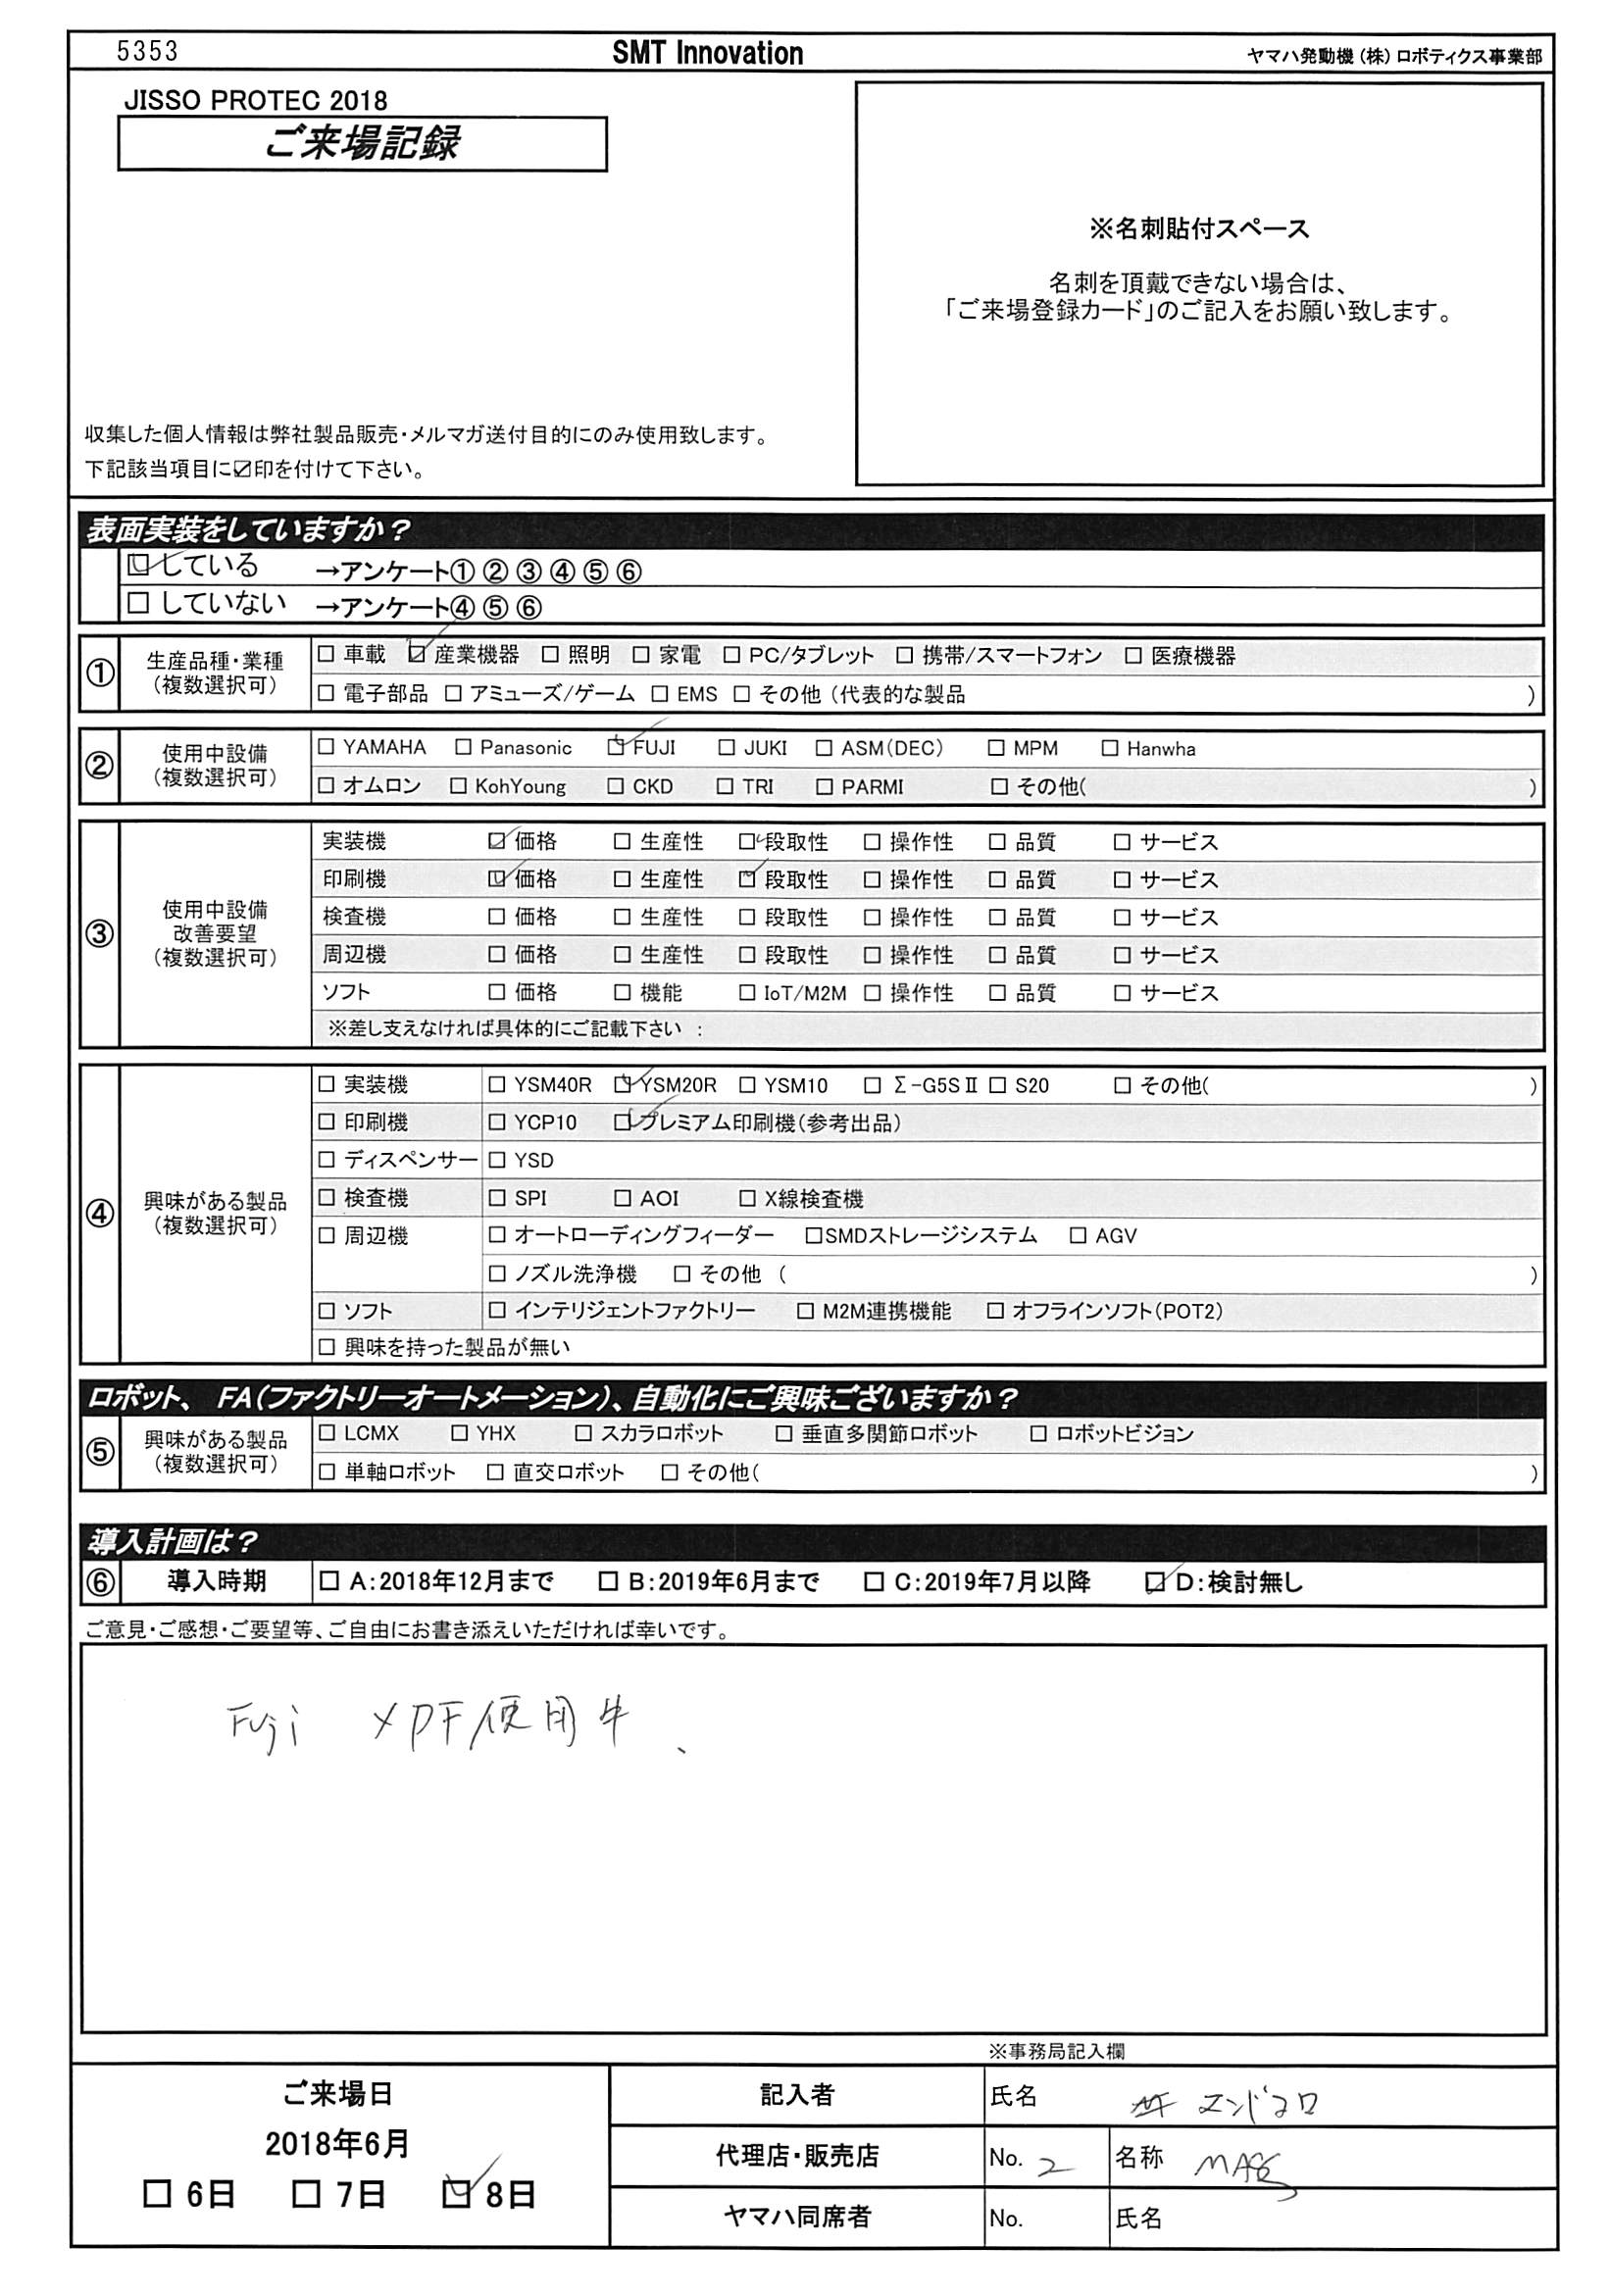 5353 SMT Innovation ヤマハ発動機（株）ロボティクス事業部
JISSO PROTEC 2018
ご来場記録
※名刺貼付スペース
名刺を頂戴できない場合は、
「ご来場登録カード」のご記入をお願い致します。
収集した個人情報は弊社製品販売・メルマガ送付目的にのみ使用致します。
下記該当項目に☑印を付けて下さい。
表面実装をしていますか？
☑ している →アンケート① ② ③ ④ ⑤ ⑥
□ していない →アンケート④ ⑤ ⑥
① 生産品種・業種（複数選択可） □ 車載 ☑ 産業機器 □ 照明 □ 家電 □ PC/タブレット □ 携帯/スマートフォン □ 医療機器
□ 電子部品 □ アミューズ/ゲーム □ EMS □ その他（代表的な製品 ）
② 使用中設備（複数選択可） □ YAMAHA □ Panasonic ☑ FUJI □ JUKI □ ASM(DEC) □ MPM □ Hanwha
□ オムロン □ KohYoung □ CKD □ TRI □ PARMI □ その他( )
③ 使用中設備改善要望（複数選択可）
実装機 ☑ 価格 □ 生産性 ☑ 段取性 □ 操作性 □ 品質 □ サービス
印刷機 ☑ 価格 □ 生産性 ☑ 段取性 □ 操作性 □ 品質 □ サービス
検査機 □ 価格 □ 生産性 □ 段取性 □ 操作性 □ 品質 □ サービス
周辺機 □ 価格 □ 生産性 □ 段取性 □ 操作性 □ 品質 □ サービス
ソフト □ 価格 □ 機能 □ IoT/M2M □ 操作性 □ 品質 □ サービス
※差し支えなければ具体的にご記載下さい ：
④ 興味がある製品（複数選択可）
□ 実装機 □ YSM40R ☑ YSM20R □ YSM10 □ Σ-G5SⅡ □ S20 □ その他( )
□ 印刷機 □ YCP10 ☑ プレミアム印刷機(参考出品)
□ ディスペンサー □ YSD
□ 検査機 □ SPI □ AOI □ X線検査機
□ 周辺機 □ オートローディングフィーダー □SMDストレージシステム □ AGV
□ ノズル洗浄機 □ その他 ( )
□ ソフト □ インテリジェントファクトリー □ M2M連携機能 □ オフラインソフト(POT2)
□ 興味を持った製品が無い
ロボット、FA(ファクトリーオートメーション)、自動化にご興味ございますか？
⑤ 興味がある製品（複数選択可） □ LCMX □ YHX □ スカラロボット □ 垂直多関節ロボット □ ロボットビジョン
□ 単軸ロボット □ 直交ロボット □ その他( )
導入計画は？
⑥ 導入時期 □ A:2018年12月まで □ B:2019年6月まで □ C:2019年7月以降 ☑ D:検討無し
ご意見・ご感想・ご要望等、ご自由にお書き添えいただければ幸いです。
Fuji XPF使用中、
※事務局記入欄
ご来場日
2018年6月
□ 6日 □ 7日 ☑ 8日
記入者 氏名 エンドコロ
代理店・販売店 No. 2 名称
ヤマハ同席者 No. 氏名